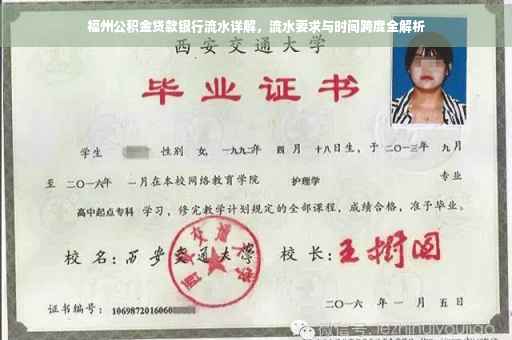 福州公积金贷款银行流水详解，流水要求与时间跨度全解析
西安交通大学
毕业证书
学生 性别 女，一九九二年 四 月 十八日生，于 二〇一三年 九月
至 二〇一六年 一月在本校网络教育学院 护理学 专业
高中起点专科 学习，修完教学计划规定的全部课程，成绩合格，准予毕业。
校 名：西安交通大学 校 长：王树国
西安交通大学
证书编号： 1069872016060
二〇一六 年 一 月 五 日
微信号: jiezhihuiyoujiao